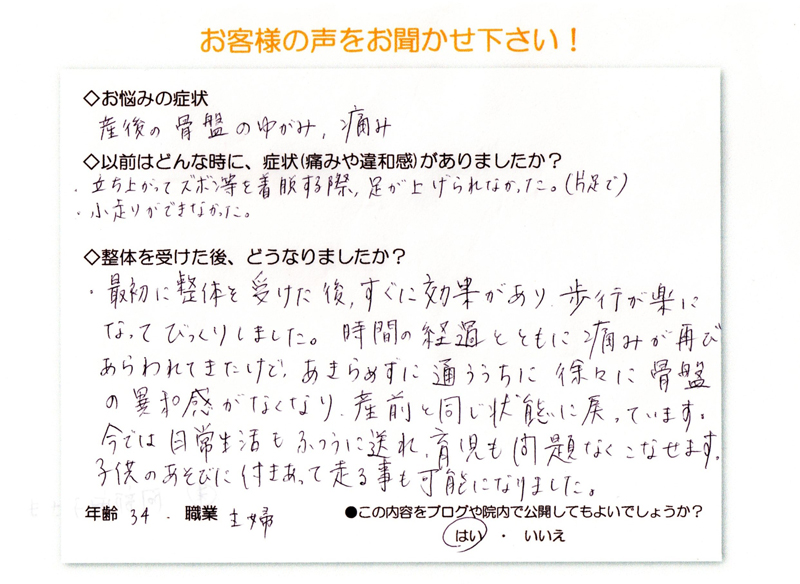 お客様の声をお聞かせ下さい！
◇お悩みの症状
産後の骨盤のゆがみ，痛み
◇以前はどんな時に、症状(痛みや違和感)がありましたか？
・立ち上がってズボン等を着服する際，足が上げられなかった。(片足で)
・小走りができなかった。
◇整体を受けた後、どうなりましたか？
・最初に整体を受けた後，すぐに効果があり、歩行が楽に
なってびっくりしました。時間の経過とともに痛みが再び
あらわれてきたけど，あきらめずに通ううちに徐々に骨盤
の異和感がなくなり、産前と同じ状態に戻っています。
今では日常生活もふつうに送れ，育児も問題なくこなせます。
子供のあそびに付きあって走る事も可能になりました。
年齢 34 . 職業 主婦 ●この内容をブログや院内で公開してもよいでしょうか？
はい ・ いいえ